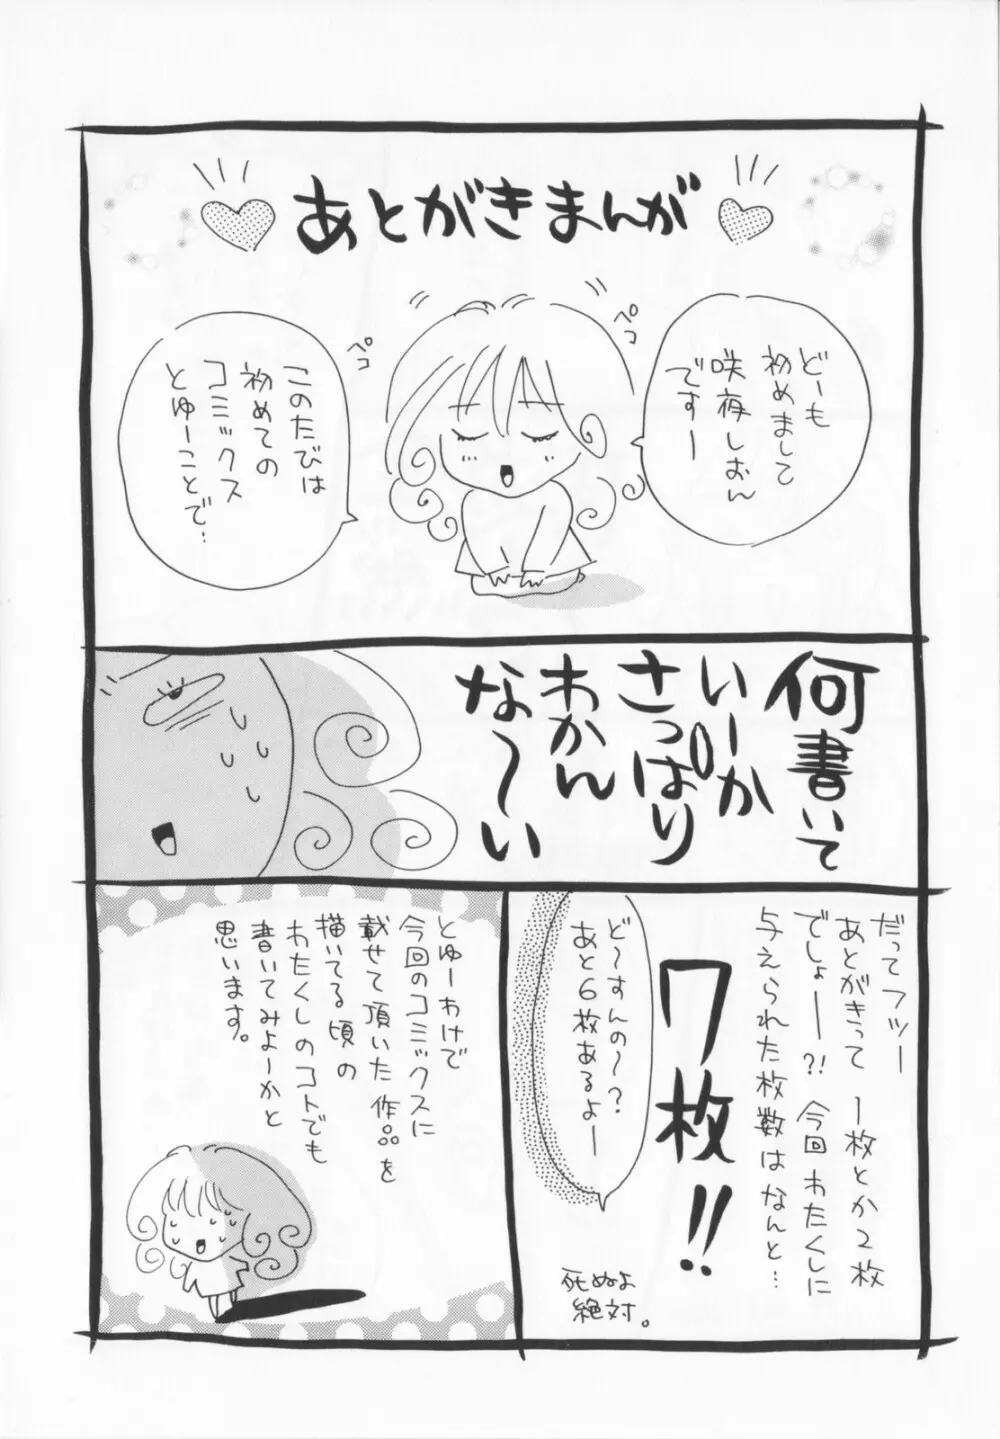 あとがきまんが
どーも
初めまして
咲夜しおん
ですー
ペコ
ペコ
このたびは
初めての
コミックス
とゆーことで…
何書いて
いーか
さっぱり
わかん
な〜い
だってフツー
あとがきって 1枚とか2枚
でしょー?! 今回わたくしに
与えられた枚数はなんと…
7枚!!
ど〜すんの〜?
あと6枚あるよー
死ぬよ
絶対。
とゆーわけで
今回のコミックスに
載せて頂いた作品を
描いてる頃の
わたくしのコトでも
書いてみよーかと
思います。